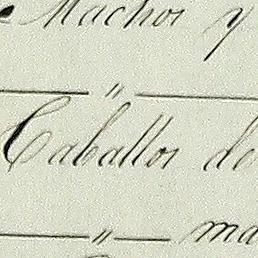 Machos y
— " —
Caballos do
— " — ma